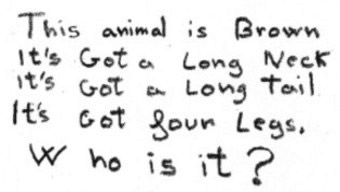 This animal is Brown
It's Got a Long Neck
it's Got a Long tail
It's Got four Legs.
Who is it?